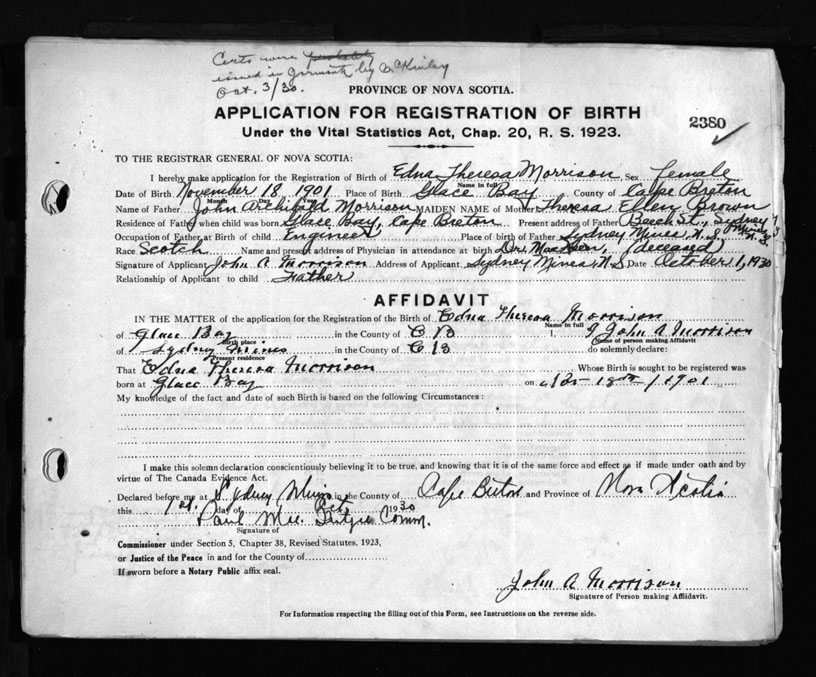 Certs were
issued in by McKinley
Oct. 3/30.
PROVINCE OF NOVA SCOTIA.
APPLICATION FOR REGISTRATION OF BIRTH
2380
Under the Vital Statistics Act, Chap. 20, R. S. 1923.
TO THE REGISTRAR GENERAL OF NOVA SCOTIA:
I hereby make application for the Registration of Birth of Edna Theresa Morrison, Sex female
Name in full
Date of Birth November 18, 1901 Place of Birth Glace Bay County of Cape Breton
Month Day Year
Name of Father John Archibald Morrison MAIDEN NAME of Mother Theresa Ellen Brown
Residence of Father when child was born Glace Bay, Cape Breton Present address of Father Beech St., Sydney Mines N.S.
Occupation of Father at Birth of child Engineer Place of birth of Father Sydney Mines, N.S.
Race Scotch Name and present address of Physician in attendance at birth (deceased)
Signature of Applicant John A Morrison Address of Applicant Sydney Mines N.S. Date October 1, 1930
Relationship of Applicant to child Father
AFFIDAVIT
IN THE MATTER of the application for the Registration of the Birth of Edna Theresa Morrison
Name in full
of Glace Bay in the County of C B I, John A Morrison
Birth place Name of person making Affidavit
of Sydney Mines in the County of C B do solemnly declare:
Present residence
That Edna Theresa Morrison Whose Birth is sought to be registered was
born at Glace Bay on Nov 18th 1901
My knowledge of the fact and date of such Birth is based on the following Circumstances:
I make this solemn declaration conscientiously believing it to be true, and knowing that it is of the same force and effect as if made under oath and by
virtue of The Canada Evidence Act.
Declared before me at Sydney Mines in the County of Cape Breton and Province of Nova Scotia
this 1st. day of Oct 1930
Paul Comm.
Signature of
Commissioner under Section 5, Chapter 38, Revised Statutes, 1923,
or Justice of the Peace in and for the County of
If sworn before a Notary Public affix seal.
John A Morrison
Signature of Person making Affidavit.
For Information respecting the filling out of this Form, see Instructions on the reverse side.